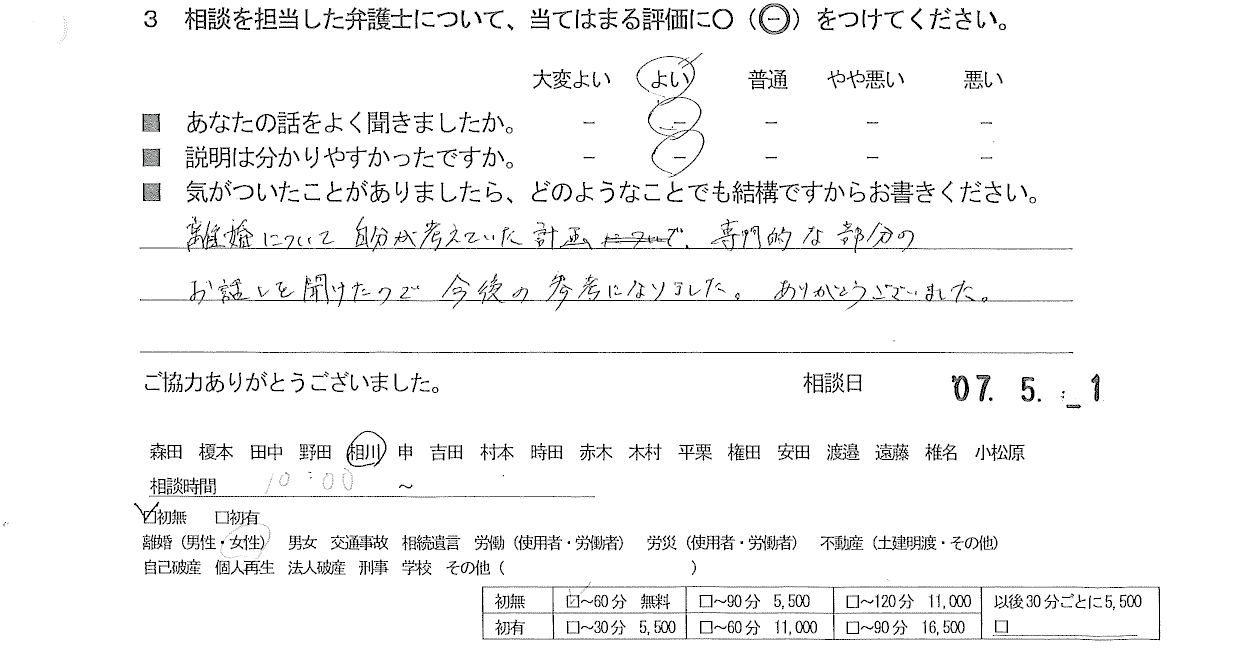 3 相談を担当した弁護士について、当てはまる評価に〇（㊀）をつけてください。
大変よい よい 普通 やや悪い 悪い
■ あなたの話をよく聞きましたか。 － － － － －
■ 説明は分かりやすかったですか。 － － － － －
■ 気がついたことがありましたら、どのようなことでも結構ですからお書きください。
離婚について 自分が考えていた計画 について、専門的な部分の
お話しを聞けたので 今後の 参考になりました。 ありがとうございました。
ご協力ありがとうございました。 相談日 '07. 5. _1
森田 榎本 田中 野田 相川 申 吉田 村本 時田 赤木 木村 平栗 権田 安田 渡邉 遠藤 椎名 小松原
相談時間 10:00 ～
☑初無 □初有
離婚（男性・女性） 男女 交通事故 相続遺言 労働（使用者・労働者） 労災（使用者・労働者） 不動産（土建明渡・その他）
自己破産 個人再生 法人破産 刑事 学校 その他（ ）
初無 ☑～60分 無料 □～90分 5,500 □～120分 11,000 以後30分ごとに5,500
初有 □～30分 5,500 □～60分 11,000 □～90分 16,500 □